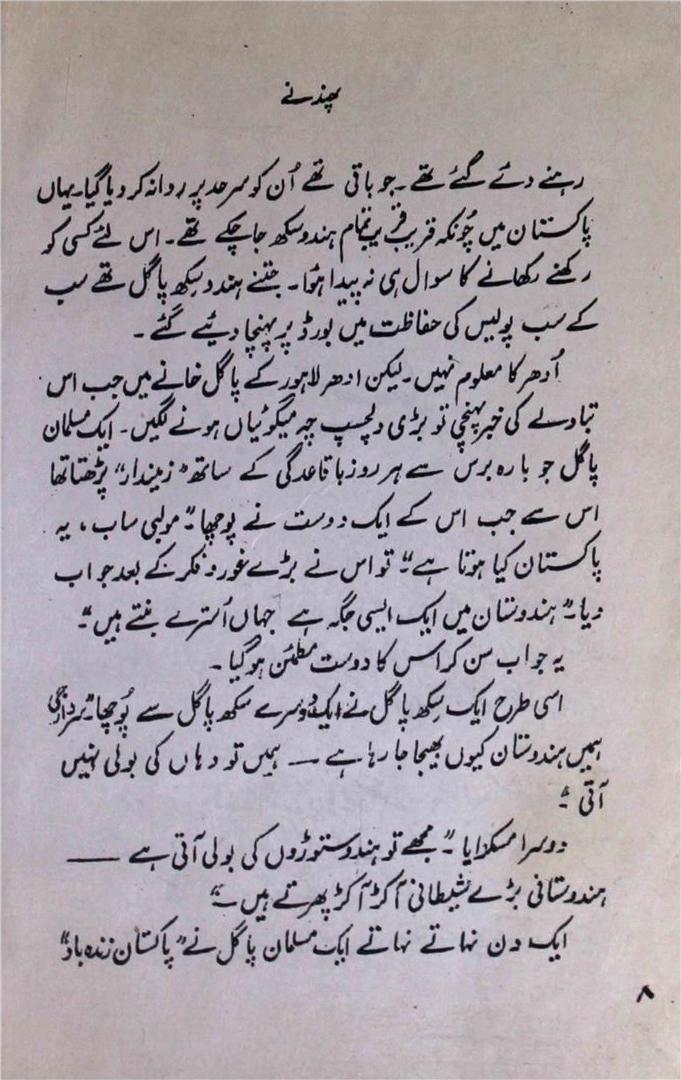 پھندنے
رہنے دئے گئے تھے۔ جو باقی تھے اُن کو سرحد پر روانہ کر دیا گیا۔ یہاں
پاکستان میں چُونکہ قریب قریب تمام ہندو سکھ جا چکے تھے۔ اس لئے کسی کو
رکھنے رکھانے کا سوال ہی نہ پیدا ہوا۔ جتنے ہندو سِکھ پاگل تھے سب
کے سب پولیس کی حفاظت میں بورڈ پر پہنچا دیئے گئے۔
اُدھر کا معلوم نہیں۔ لیکن ادھر لاہور کے پاگل خانے میں جب اس
تبادلے کی خبر پہنچی تو بڑی دلچسپ چہ میگوئیاں ہونے لگیں۔ ایک مسلمان
پاگل جو بارہ برس سے ہر روز باقاعدگی کے ساتھ "زمیندار" پڑھتا تھا
اس سے جب اس کے ایک دوست نے پوچھا۔" مولبی ساب، یہ
پاکستان کیا ہوتا ہے"۔ تو اس نے بڑے غور و فکر کے بعد جواب
دیا۔" ہندوستان میں ایک ایسی جگہ ہے جہاں اُسترے بنتے ہیں"۔
یہ جواب سن کر اس کا دوست مطمئن ہو گیا۔
اسی طرح ایک سِکھ پاگل نے ایک دوسرے سکھ پاگل سے پُوچھا۔"سردارجی
ہمیں ہندوستان کیوں بھیجا جا رہا ہے — ہمیں تو وہاں کی بولی نہیں
آتی"۔
دوسرا مسکرایا۔" مجھے تو ہندوستوڑوں کی بولی آتی ہے ——
ہندوستانی بڑے شیطانی آکڑ آکڑ پھرتے ہیں۔"
ایک دن نہاتے نہاتے ایک مسلمان پاگل نے "پاکستان زندہ باد"
۸